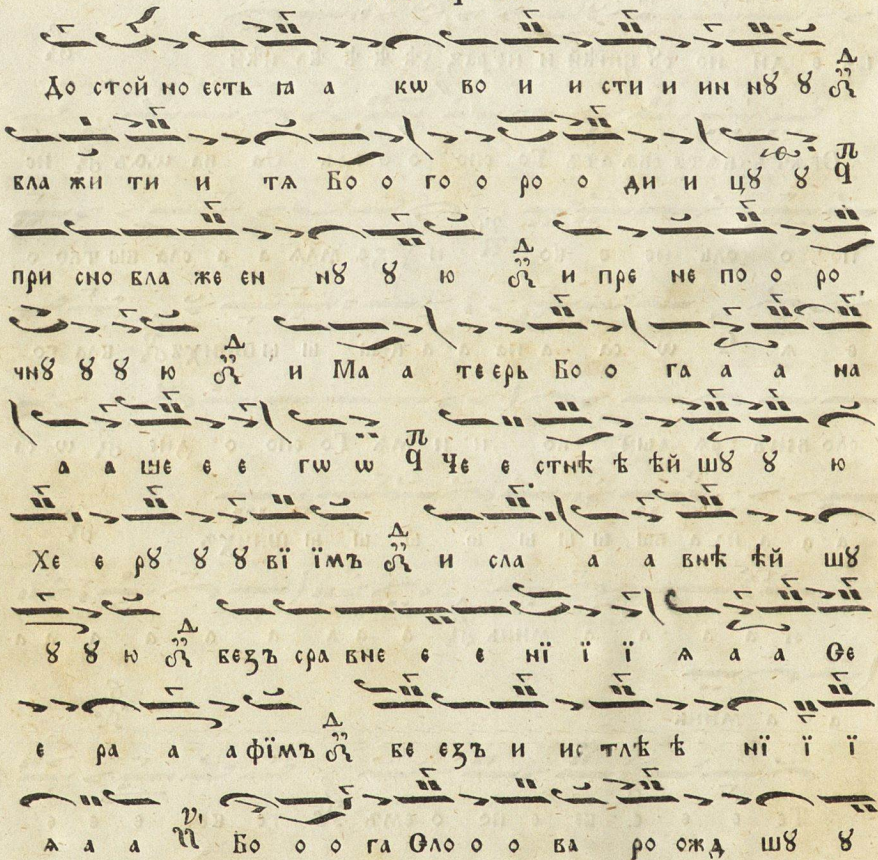 До стой но есть ꙗ а кѡ во и и сти и ин нꙋ ꙋ
бла жи ти и тѧ Бо о го о ро о ди и цꙋ ꙋ
при сно бла же ен нꙋ ꙋ ю и пре не по о ро
чнꙋ ꙋ ꙋ ю и Ма а те ерь Бо о га а а на
а а ше е е гѡ ѡ Че е стнѣ ѣ ѣй шꙋ ꙋ ю
Хе е рꙋ ꙋ ꙋ ві їмъ и сла а а внѣ ѣй шꙋ
ꙋ ꙋ ю безъ сра вне е е нї ї ї ѧ а а Се
е ра а а фїмъ бе езъ и ис тлѣ ѣ нї ї ї
ѧ а а Бо о о га Сло о о ва ро ожд шꙋ ꙋ